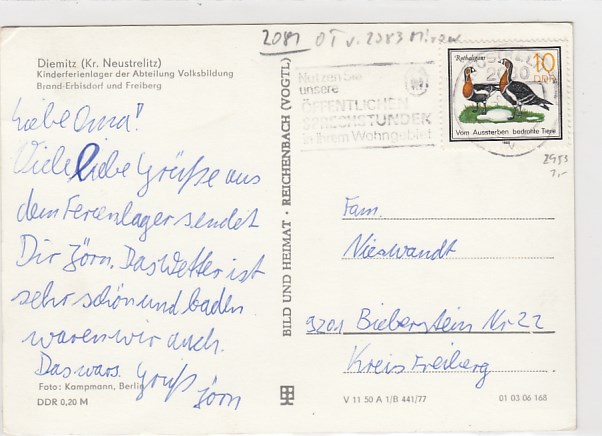 2081 OT v. 2083 Mirow
Diemitz (Kr. Neustrelitz)
Kinderferienlager der Abteilung Volksbildung
Brand-Erbisdorf und Freiberg
Liebe Oma!
Viele liebe Grüße aus
dem Ferienlager sendet
Dir Jörn. Das Wetter ist
sehr schön und baden
waren wir auch.
Das wars. Gruß
Jörn
Foto: Kampmann, Berlin
DDR 0,20 M
BILD UND HEIMAT · REICHENBACH (VOGTL)
Nutzen Sie
unsere
ÖFFENTLICHEN
SPRECHSTUNDEN
in Ihrem Wohngebiet
2080
Rothalsgans
10
DDR
Vom Aussterben bedrohte Tiere
2953
1,-
Fam.
Nieswandt
9201 Bieberstein Nr 22
Kreis Freiberg
V 11 50 A 1/B 441/77
01 03 06 168